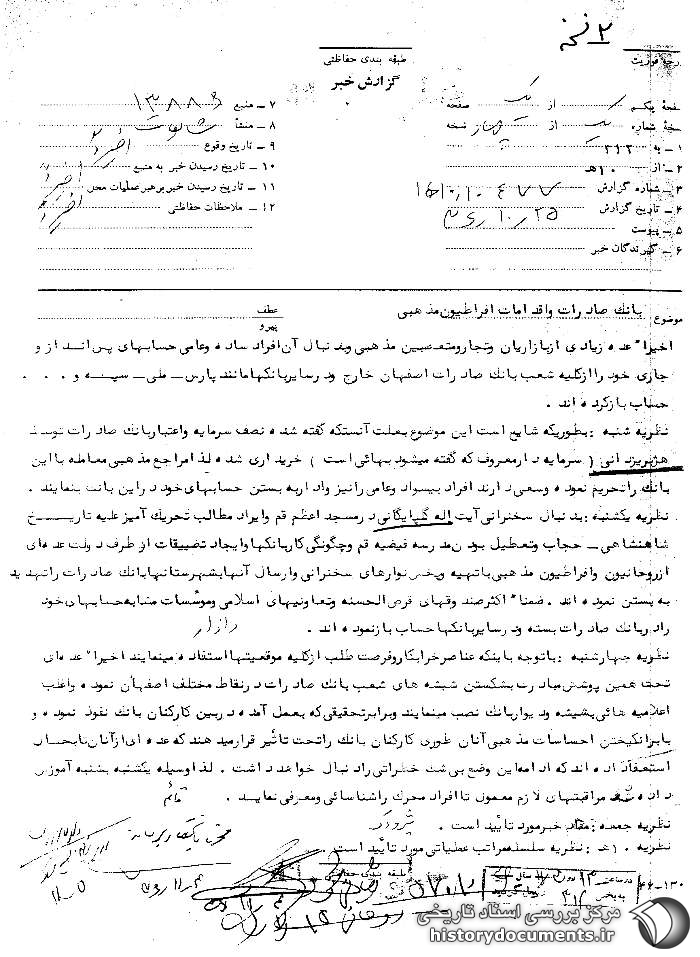 ۲ نسخه
درجه فوریت
طبقه بندی حفاظتی
گزارش خبر
صفحه یکم از یک صفحه
نسخه شماره از نسخه
۱ ـ به ۳۱۲
۲ ـ از ۱۰ هـ
۳ ـ شماره گزارش
۴ ـ تاریخ گزارش
۵ ـ پیوست
۶ ـ گیرندگان خبر
۷ ـ منبع
۸ ـ منشأ شایعات
۹ ـ تاریخ وقوع اخیراً
۱۰ ـ تاریخ رسیدن خبر به منبع اخیراً
۱۱ ـ تاریخ رسیدن خبر برهبر عملیات محل
۱۲ ـ ملاحظات حفاظتی
موضوع بانك صادرات واقدامات افراطیون مذهبی
عطف
پیرو
اخیرا" عده زیادی ازبازاریان وتجارومتعصبین مذهبی وبدنبال آن افراد ساده وعامی حسابهای پس انداز و
جاری خود راازکلیه شعب بانك صادرات اصفهان خارج ودرسایربانکهامانند پارس ـ ملی ـ سپه و . . .
حساب بازکرده اند .
نظریه شنبه : بطوریکه شایع است این موضوع بعلت آنستکه گفته شده نصف سرمایه واعتباربانك صادرات توسط
هژبریزدانی ( سرمایه دارمعروف که گفته میشود بهائی است ) خریداری شده لذا مراجع مذهبی معامله بااین
بانك راتحریم نموده وسعی دارند افراد بیسواد وعامی رانیز وادار به بستن حسابهای خود دراین بانك بنمایند .
نظریه یکشنبه : بدنبال سخنرانی آیت اله گلپایگانی درمسجد اعظم قم وایراد مطالب تحریك آمیز علیه تاریخ
شاهنشاهی ـ حجاب وتعطیل بودن مدرسه فیضیه قم وچگونگی کاربانکها وایجاد تضییقات از طرف دولت عده ای
ازروحانیون وافراطیون مذهبی باتهیه وپخش نوارهای سخنرانی وارسال آنها بشهرستانها بانك صادرات راتهدید
به بستن نموده اند . ضمنا" اکثر صندوقهای قرض الحسنه وتعاونیهای اسلامی وموسسات مشابه حسابهای خود
رادربانك صادرات بسته ودرسایربانکها حساب بازنموده اند .
نظریه چهارشنبه : باتوجه باینکه عناصرخرابکاروفرصت طلب ازکلیه موقعیتها استفاده مینمایند اخیرا" عده ای
تحت همین پوشش مبادرت بشکستن شیشه های شعب بانك صادرات درنقاط مختلف اصفهان نموده واغلب
اعلامیه هائی بشیشه ودیواربانك نصب مینمایند وبرابرتحقیقی که بعمل آمده دربین کارکنان بانك نفوذ نموده و
بابرانگیختن احساسات مذهبی آنان طوری کارکنان بانك راتحت تأثیر قرارمیدهند که عده ای ازآنان تابحال
استعفا داده اند که ادامه این وضع بی شك خطراتی رادنبال خواهد داشت . لذا وسیله یکشنبه بشنبه آموزش
داده شد مراقبتهای لازم معمول تا افراد محرك راشناسائی ومعرفی نماید .
نظریه جمعه : مفاد خبرمورد تأیید است .
نظریه ۱۰هـ : نظریه سلسله مراتب عملیاتی مورد تأیید است .
طبقه بندی حفاظتی
مرکز بررسی اسناد تاریخی
historydocuments.ir